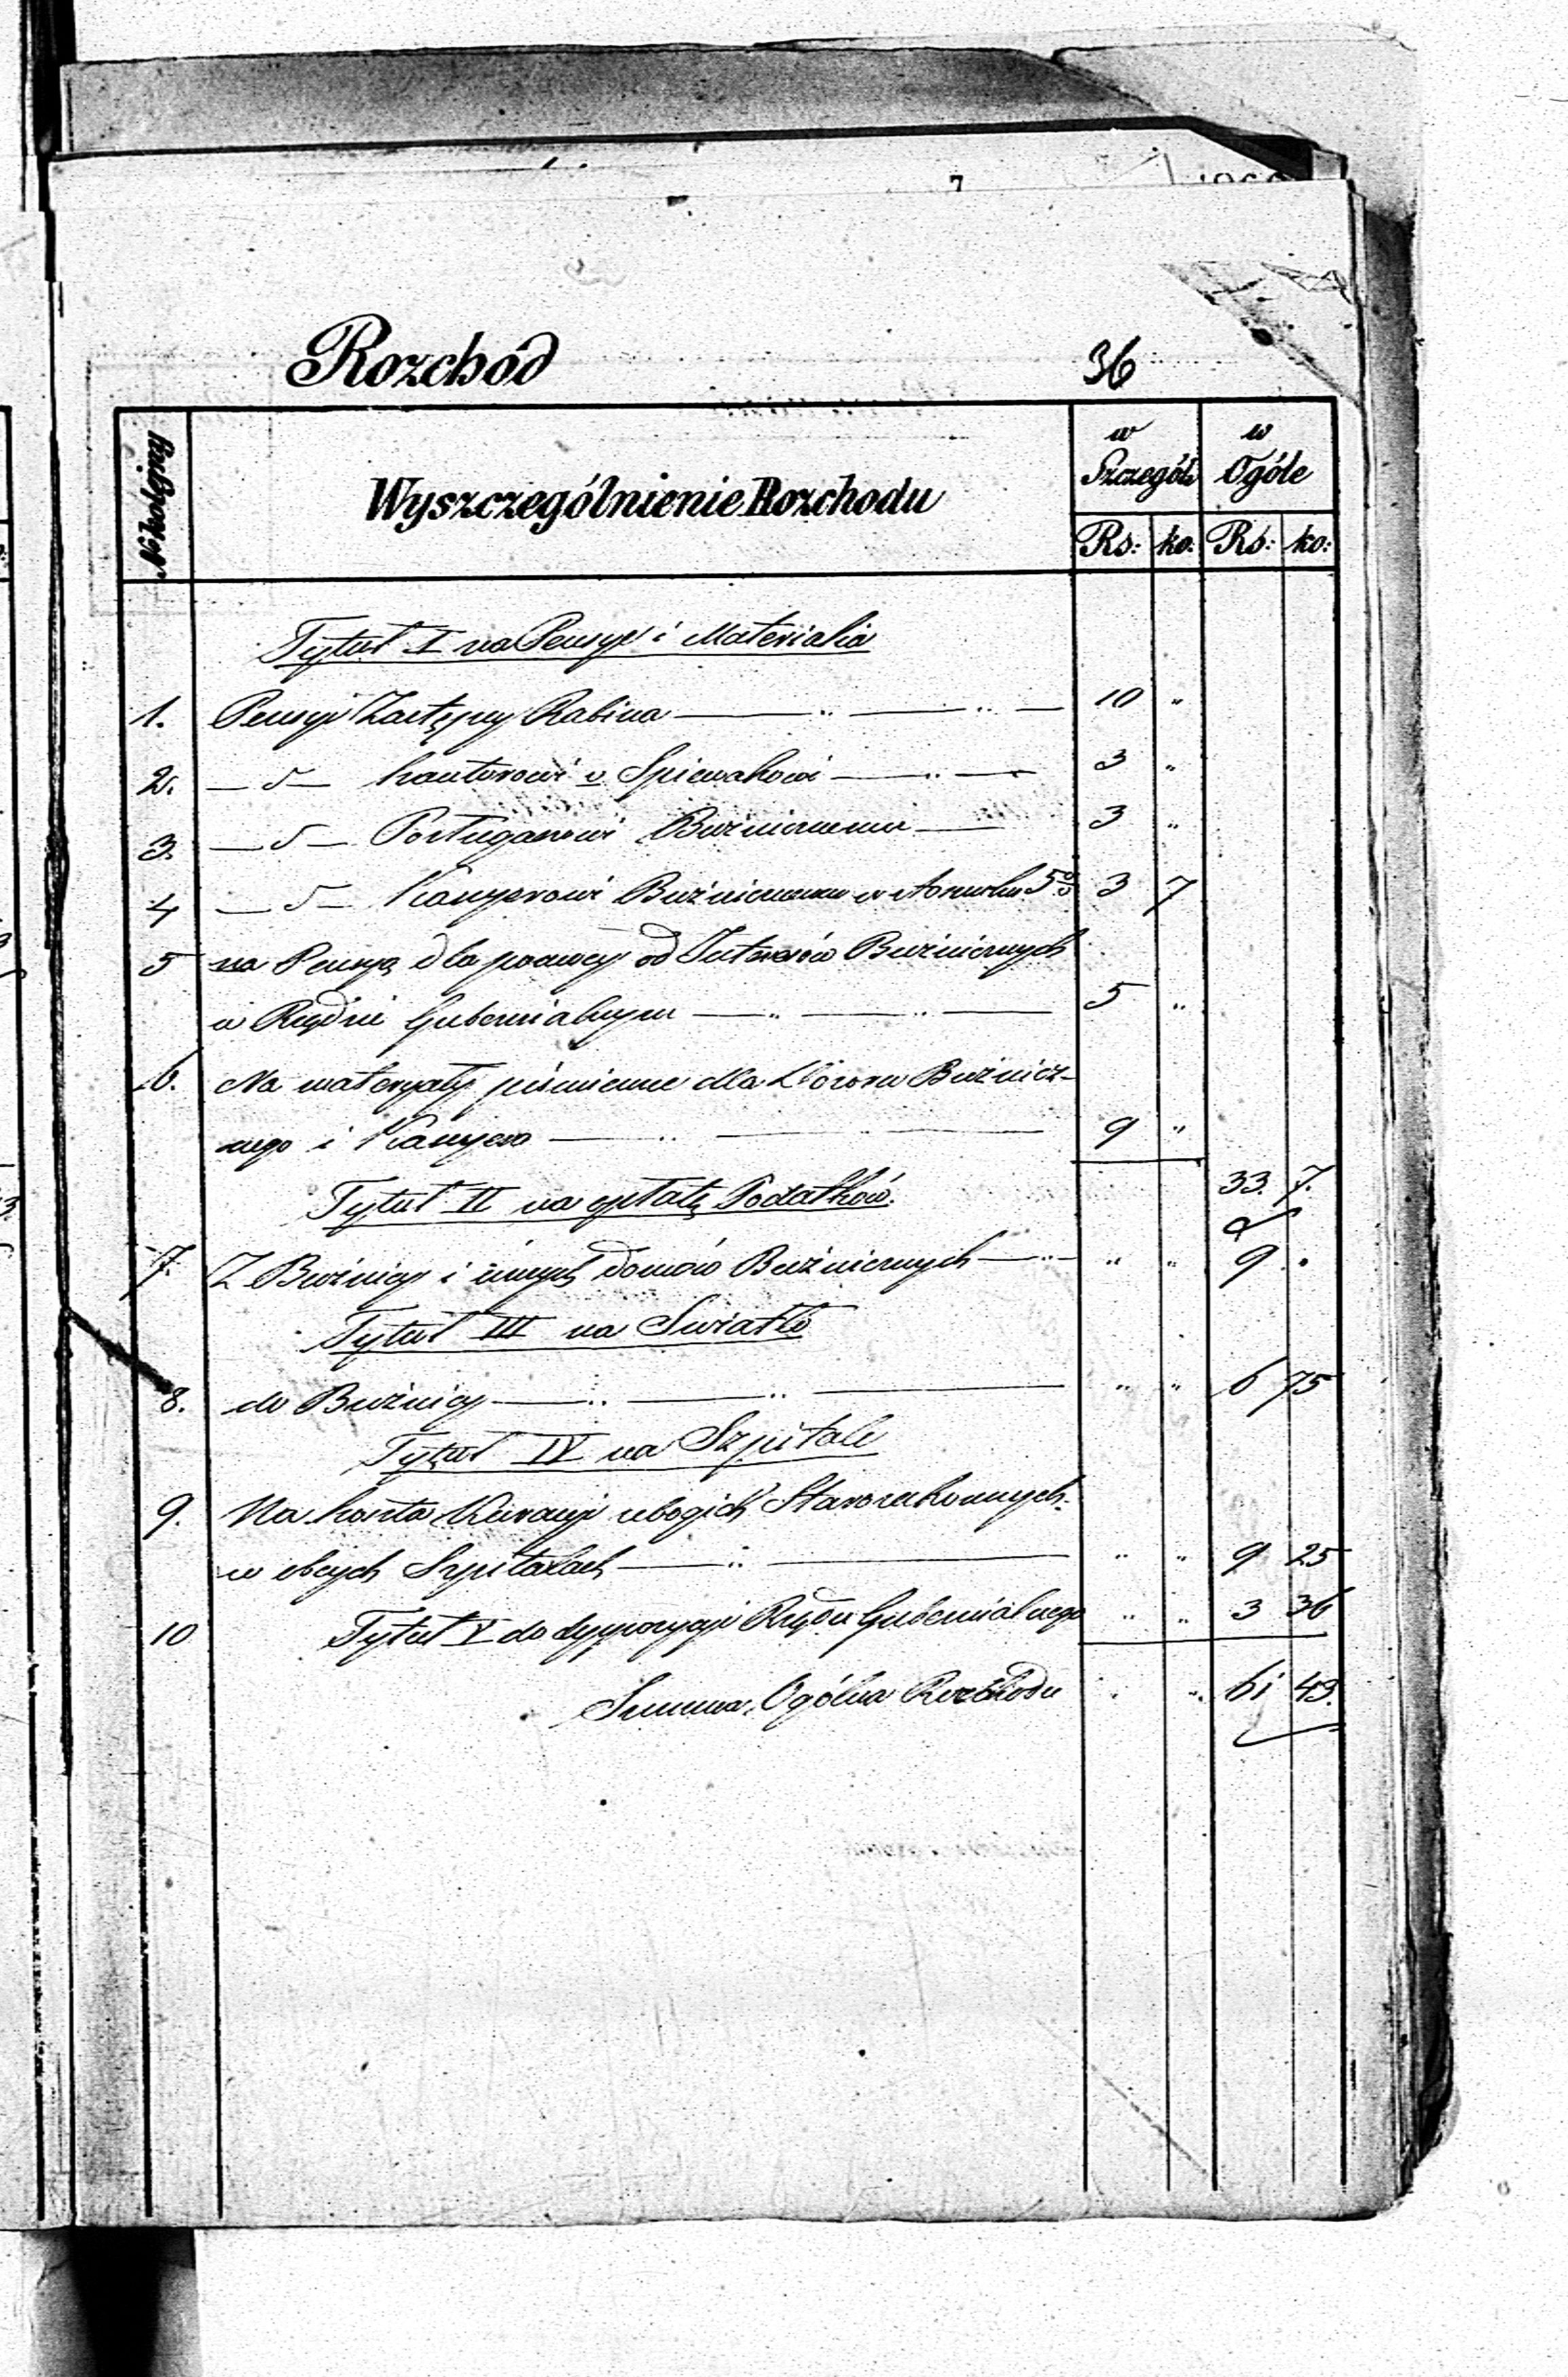 7
Rozchód
36
No kolejny
Wyszczególnienie Rozchodu
w Szczególe
w Ogóle
Rs: ko: Rs: ko:
Tytuł I na Pensye i Materialia
1. Pensyi Zastępcy Rabina 10 "
2. — d — Kantorowi v Spiewakowi 3 "
3. — d — Buźnicznemu 3 "
4 — d — Kassyerowi Buźnicznemu w stosunku 5% 3 7
5 na Pensyą dla pracocy od Interesów Buźnicznych
w Rządzie Gubernialnym 5 "
6. Na materyały piśmienne dla Dozoru Buźnicz-
nego i Kassyera 9 "
33. 7.
Tytuł II na opłatę Podatków.
7. Z Buźnicy i innych domów Buźnicznych " " 9 "
Tytuł III na Swiatło
8. do Buźnicy " " 6 75
Tytuł IV na Szpitale
9. Na koszta Kuracyi ubogich Starozakonnych
w obcych Szpitalach " " 9 25
10 Tytuł V do dyspozycyi Rządu Gubernialnego " " 3 36
Summa Ogólna Rozchodu " " 61 43.